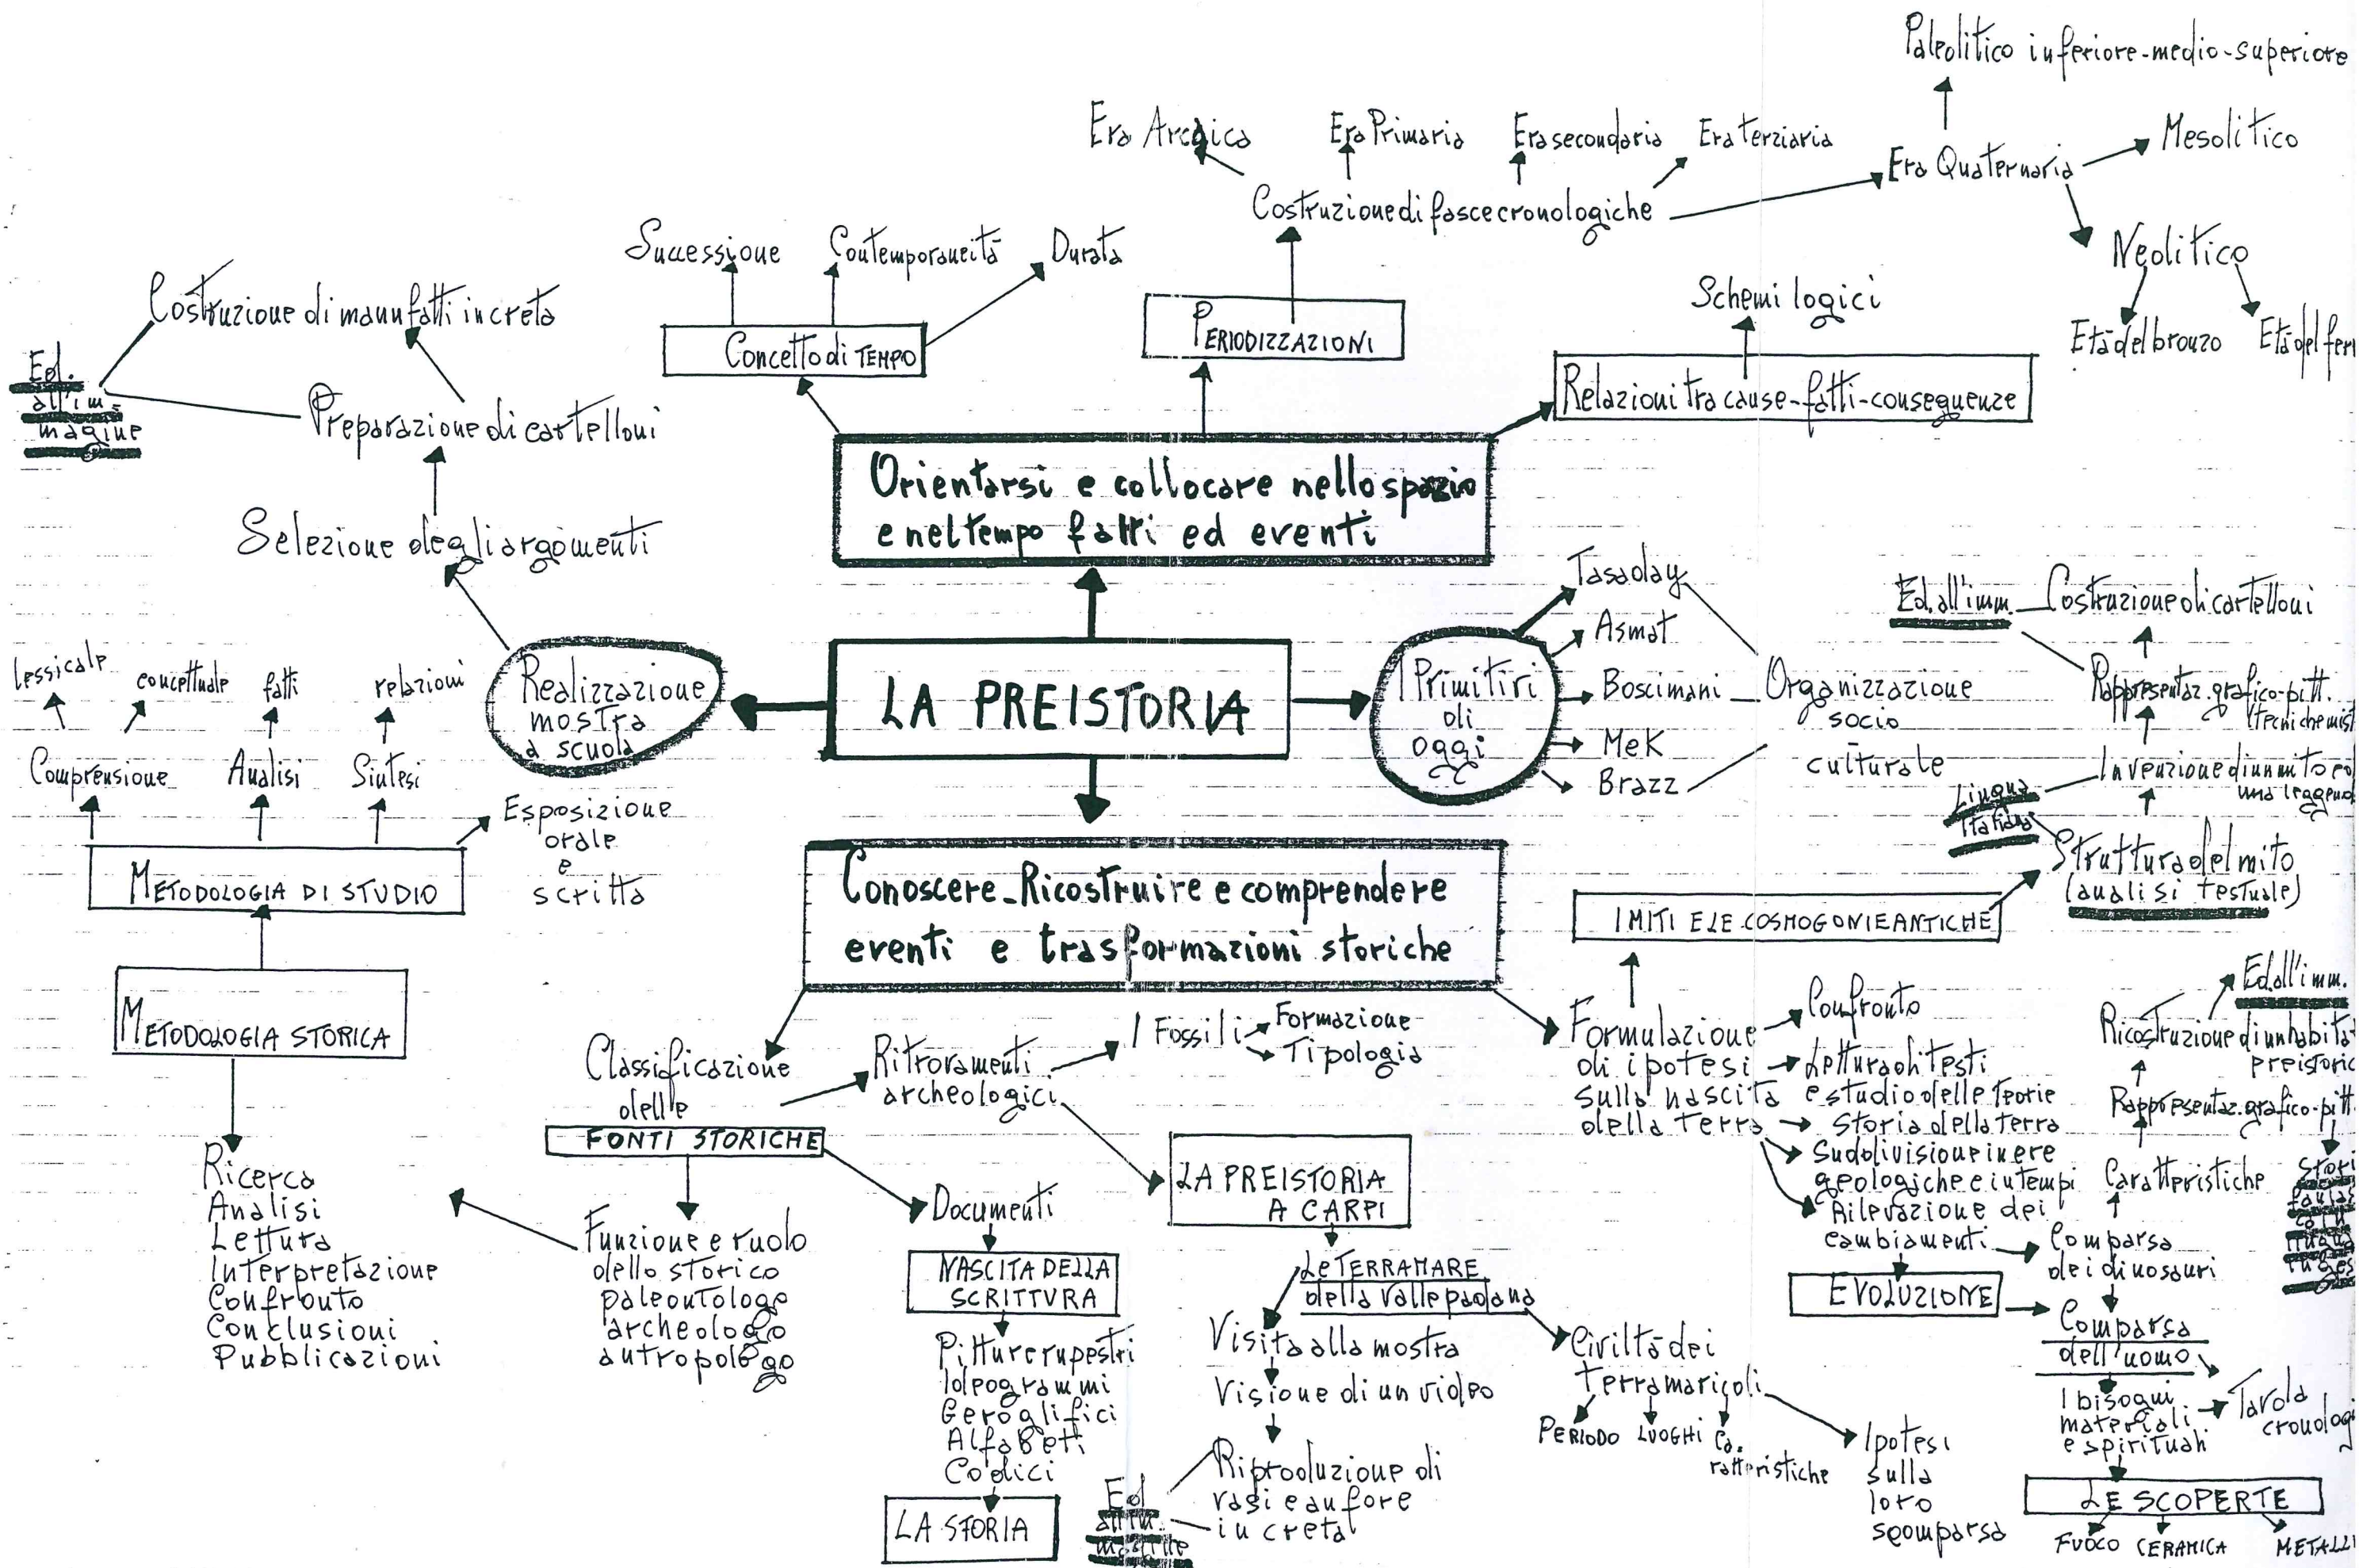 Paleolitico inferiore-medio-superiore
Era Arcaica
Era Primaria
Era secondaria
Era terziaria
Mesolitico
Era Quaternaria
Costruzione di fasce cronologiche
Successione
Contemporaneità
Durata
Neolitico
Età del bronzo
Età del fer
Schemi logici
Costruzione di manufatti in creta
Concetto di TEMPO
PERIODIZZAZIONI
Relazioni tra cause-fatti-conseguenze
Ed.
all'im=
magine
Preparazione di cartelloni
Selezione degli argomenti
Orientarsi e collocare nello spazio
e nel tempo fatti ed eventi
Tasaday
Asmat
Boscimani
Mek
Brazz
Organizzazione
socio
culturale
I Primitivi
di
oggi
LA PREISTORIA
Realizzazione
mostra
a scuola
Ed. all'imm.
Costruzione di cartelloni
Rappresentaz. grafico-pitt.
(tecniche mist
Invenzione di un mito e d
una leggend
Lingua
Italiana
Struttura del mito
(analisi testuale)
lessicale
concettuale
fatti
relazioni
Comprensione
Analisi
Sintesi
Esposizione
orale
e
scritta
METODOLOGIA DI STUDIO
METODOLOGIA STORICA
Ricerca
Analisi
Lettura
Interpretazione
Confronto
Conclusioni
Pubblicazioni
Conoscere-Ricostruire e comprendere
eventi e trasformazioni storiche
I MITI E LE COSMOGONIE ANTICHE
Classificazione
delle
FONTI STORICHE
Ritrovamenti
archeologici
I Fossili
Formazione
Tipologia
Funzione e ruolo
dello storico
paleontologo
archeologo
antropologo
Documenti
NASCITA DELLA
SCRITTURA
Pitture rupestri
Ideogrammi
Geroglifici
Alfabeti
Codici
LA STORIA
LA PREISTORIA
A CARPI
Le TERRAMARE
della Valle padana
Visita alla mostra
Visione di un video
Riproduzione di
vasi e anfore
in creta
Ed
all'im.
Civiltà dei
terramaricoli
PERIODO
LUOGHI
Ca=
ratteristiche
Ipotesi
sulla
loro
scomparsa
Formulazione
di ipotesi
sulla nascita
della terra
Confronto
Lettura di testi
e studio delle teorie
Storia della terra
Suddivisione in ere
geologiche e in tempi
Rilevazione dei
cambiamenti
EVOLUZIONE
Ed. all'imm.
Ricostruzione di un habita
preistoric
Rappresentaz. grafico-pitt.
Caratteristiche
Comparsa
dei dinosauri
Comparsa
dell'uomo
I bisogni
materiali
e spirituali
Tavola
cronologi
LE SCOPERTE
FUOCO
CERAMICA
METALLI